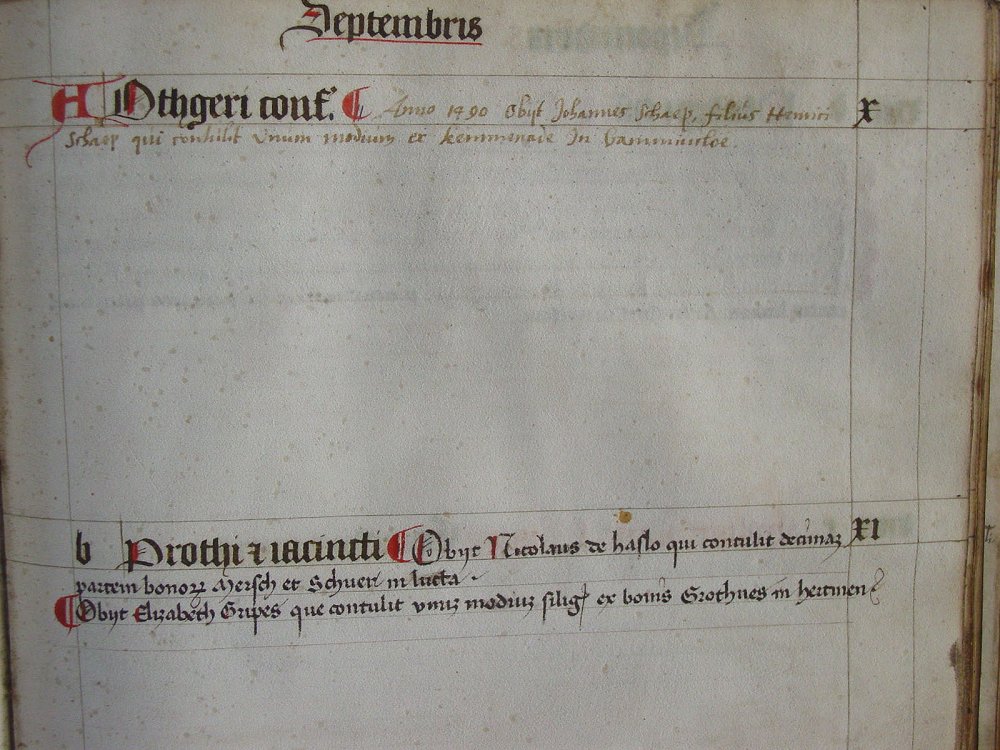 Septembris
A Othgeri conf. ¶ Anno 1490 Obijt Johannes Schaep, filius Henrici X
Schaep qui contulit unum modium ex Kemmenade In
b Prothi ⁊ iacincti ¶ Obijt Nicolaus de haslo qui contulit decimaz XI
partem bonorꝝ Mersch et Schueri in lucta
¶ Obijt Elizabeth Gripes que contulit vnuz modiuz silig ex bonis Grothues in hertmen